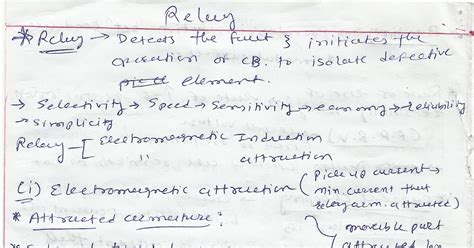 Relay
* Relay → Detects the fault & initiates the
operation of CB. to isolate defective
element.
→ Selectivity → Speed → Sensitivity → economy → reliability
→ Simplicity
Relay - [ Electromagnetic Induction
" attraction
(i) Electromagnetic attraction ( Pick up current →
min. current that
relay arm. attracted )
* Attracted armature :
→ moveable part
attracted